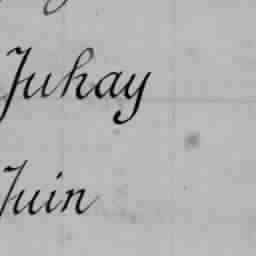 Juhay
Juin